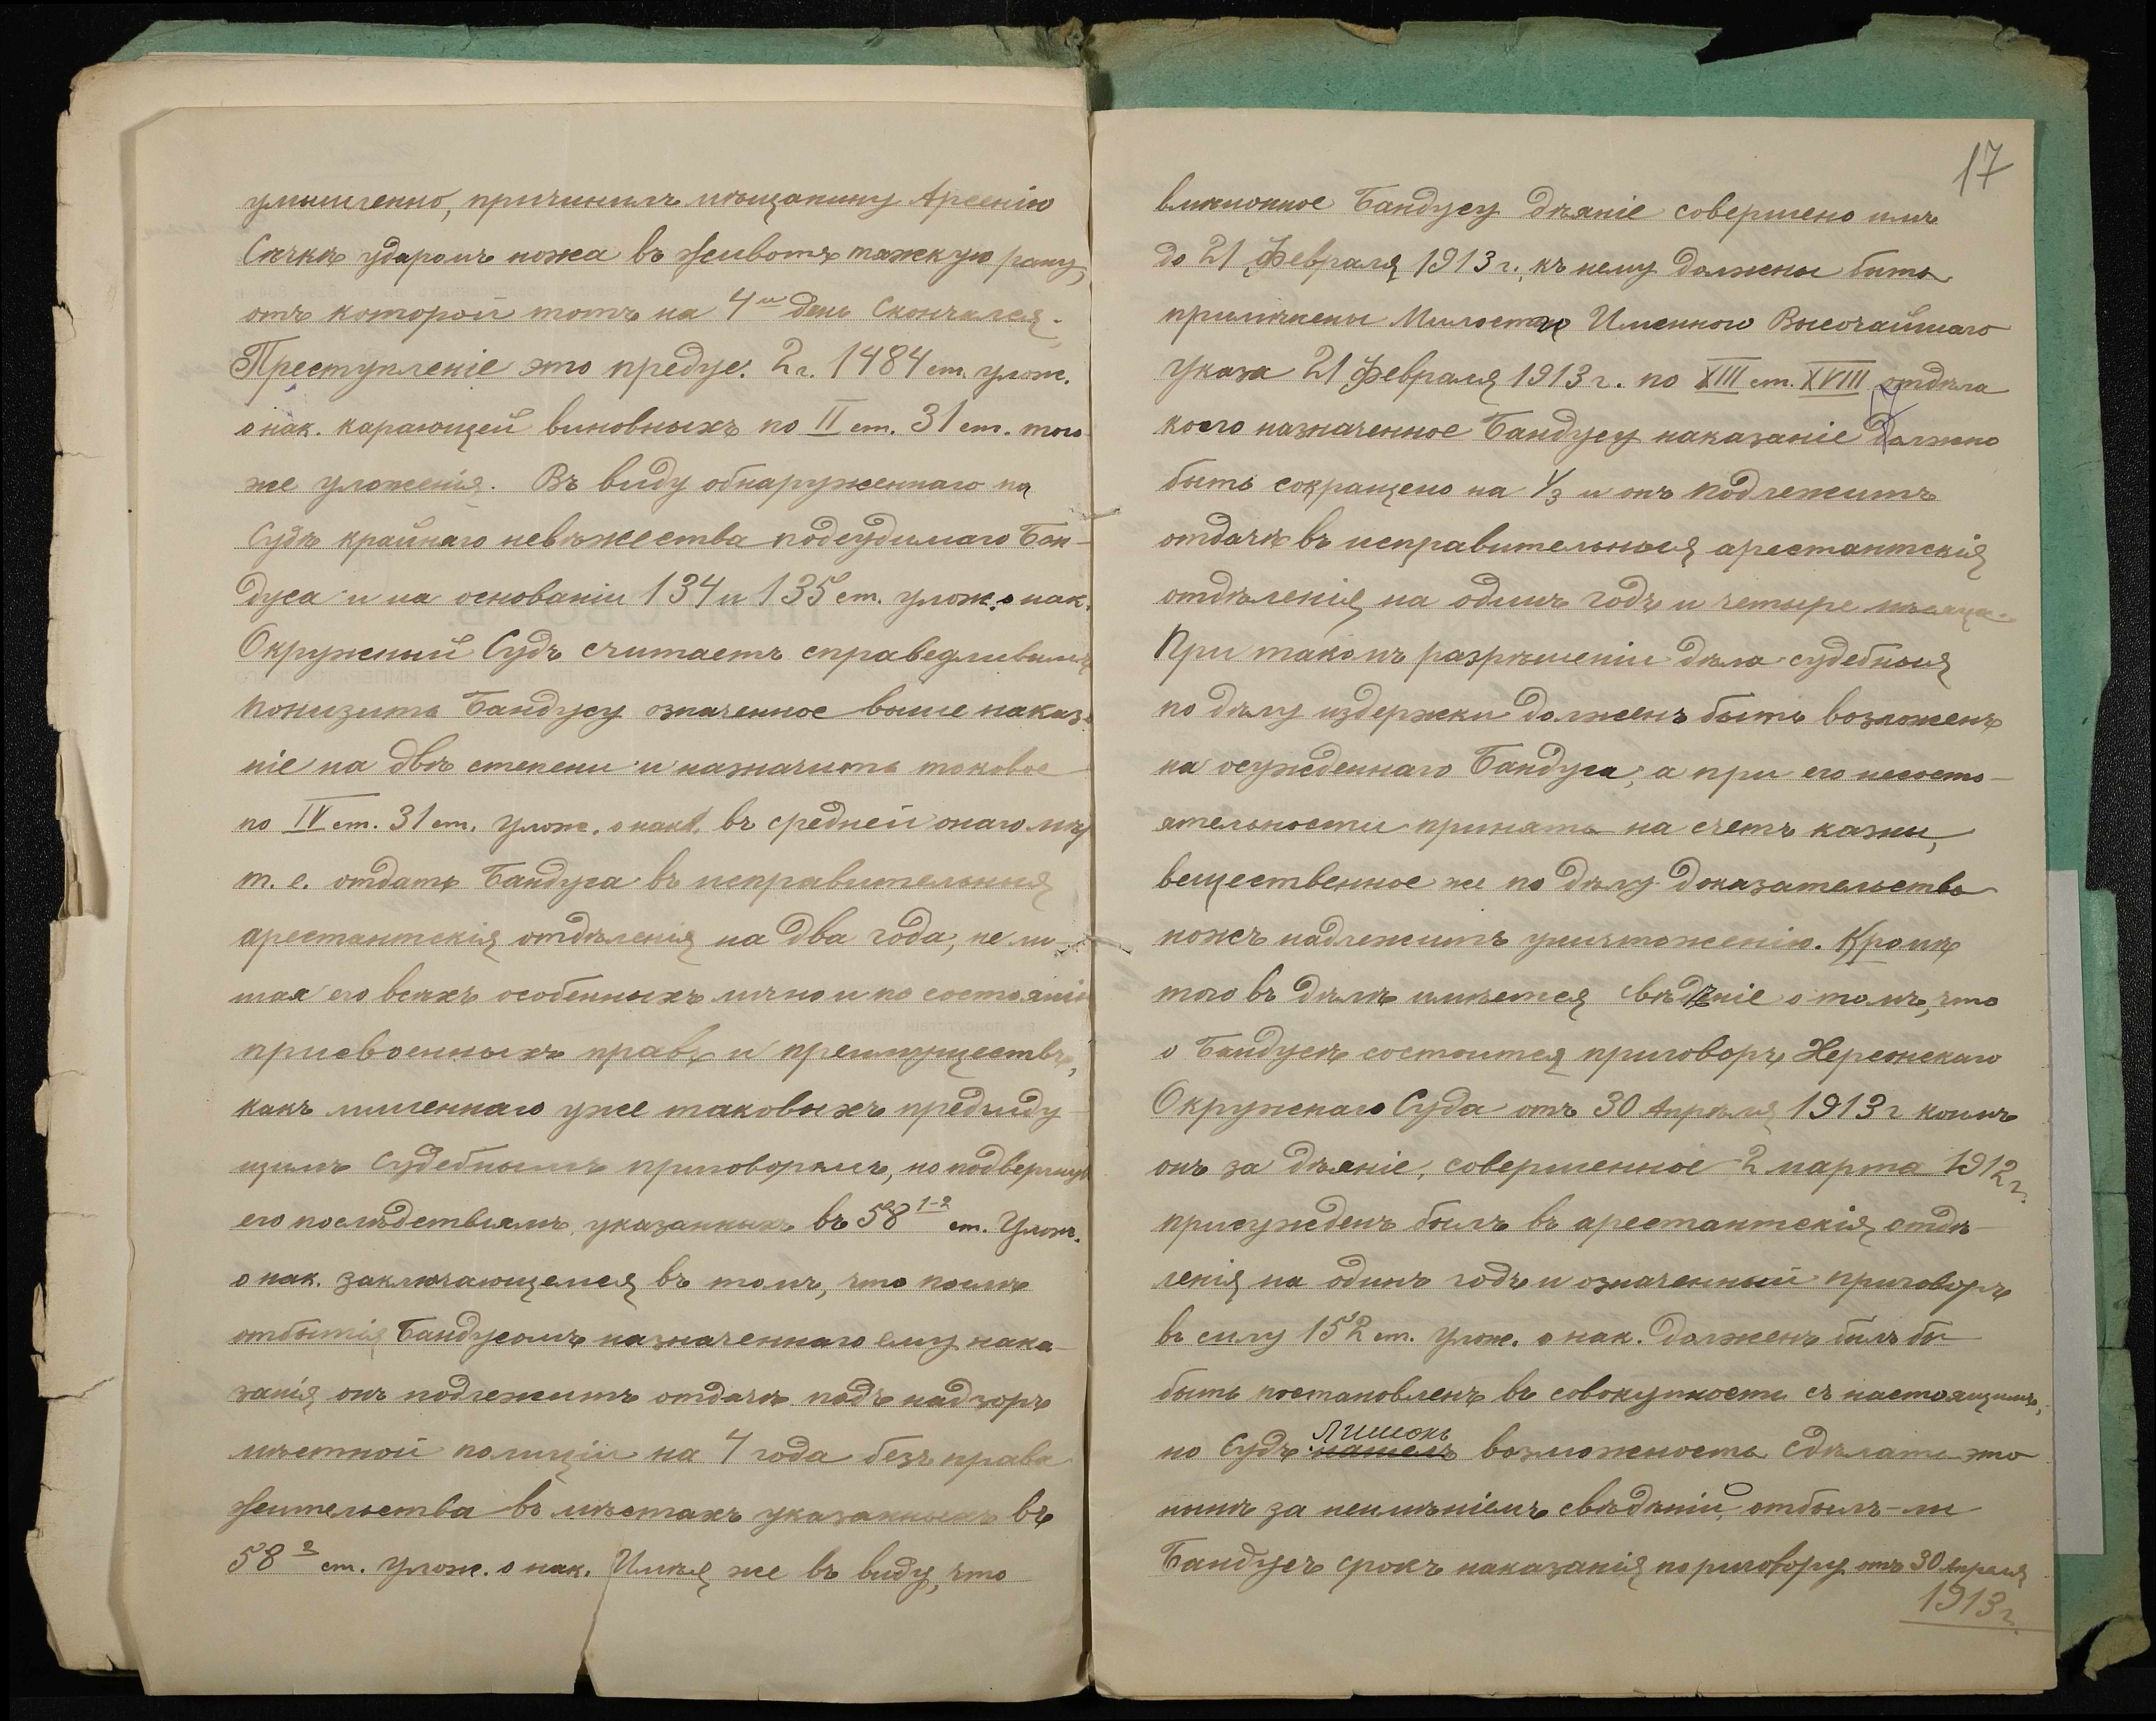 умышленно, причинилъ мѣщанину Арсенію
Сѣчкѣ ударомъ ножа въ животъ тяжкую рану,
отъ которой тотъ на 4й день скончался.
Преступленіе это предус. 2 ч. 1484 ст. улож.
о нак. карающей виновныхъ по II ст. 31 ст. того
же уложенія. Въ виду обнаруженнаго на
судѣ крайняго невѣжества подсудимаго Бан-
дуса и на основаніи 134 и 135 ст. улож. о нак.
Окружный Судъ считаетъ справедливымъ
понизить Бандусу означенное выше наказа
ніе на двѣ степени и назначить таковое
по IV ст. 31 ст. улож. о нак. въ средней онаго мѣр
т. е. отдать Бандуса въ исправительныя
арестантскія отдѣленія на два года, не ли-
шая его всѣхъ особенныхъ лично и по состоянію
присвоенныхъ правъ и преимуществъ,
какъ лишеннаго уже таковыхъ предъиду-
щимъ судебнымъ приговоромъ, но подвергнувъ
его послѣдствіямъ, указаннымъ въ 58 1-2 ст. Улож.
о нак. заключающемся въ томъ, что послѣ
отбытія Бандусомъ назначеннаго ему нака-
занія онъ подлежитъ отдачѣ подъ надзоръ
мѣстной полиціи на 4 года безъ права
жительства въ мѣстахъ указанныхъ въ
58 2 ст. улож. о нак. Имѣя же въ виду, что
17
вмѣненное Бандусу дѣяніе совершено имъ
до 21 Февраля 1913 г. къ нему должны быть
примѣнены Милости Именного Высочайшаго
Указа 21 Февраля 1913 г. по XIII ст. XVIII отдѣла
коего назначенное Бандусу наказаніе должно
быть сокращено на 1/3 и онъ подлежитъ
отдачѣ въ исправительныя арестантскія
отдѣленія на одинъ годъ и четыре мѣсяца.
При такомъ разрѣшеніи дѣла судебныя
по дѣлу издержки должен быть возложенъ
на осужденнаго Бандуса, а при его несосто-
ятельности принять на счетъ казны,
вещественное же по дѣлу доказательство
ножъ надлежитъ уничтоженію. Кромѣ
того въ дѣлѣ имѣется свѣдѣніе о томъ, что
о Бандусѣ состоится приговоръ Херсонскаго
Окружнаго Суда отъ 30 Апрѣля 1913 г. коимъ
онъ за дѣяніе, совершенное 2 марта 1912 г.
присужденъ былъ въ арестантскія отдѣ-
ленія на одинъ годъ и означенный приговоръ
въ силу 152 ст. улож. о нак. долженъ былъ бы
быть постановленъ въ совокупности съ настоящимъ,
но Судъ лишонъ нашелъ возможность сдѣлать это
нынѣ за неимѣніемъ свѣдѣній, отбылъ-ли
Бандусъ срокъ наказанія по приговору отъ 30 Апрѣля
1913 г.